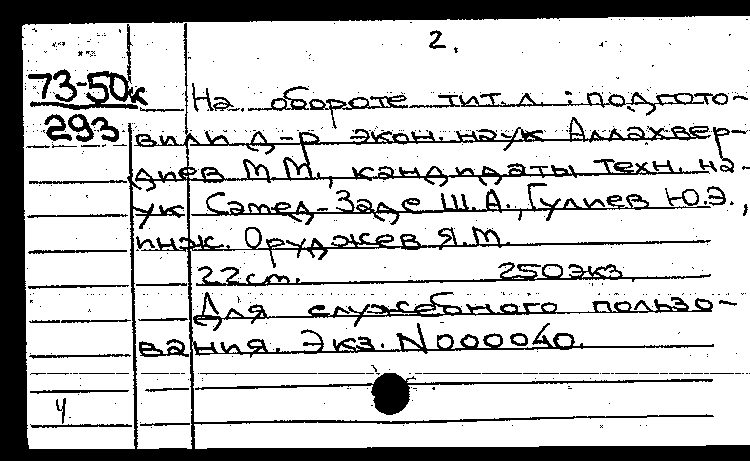 2.
73-50к
293
На обороте тит. л. : подгото-
вили д-р экон. наук Аллахвер-
диев М.М., кандидаты техн. на-
ук Самед-Заде Ш.А., Гулиев Ю.Э.,
инж. Оруджев Я.М.
22 см. 250 экз.
Для служебного пользо-
вания. Экз. N 000040.